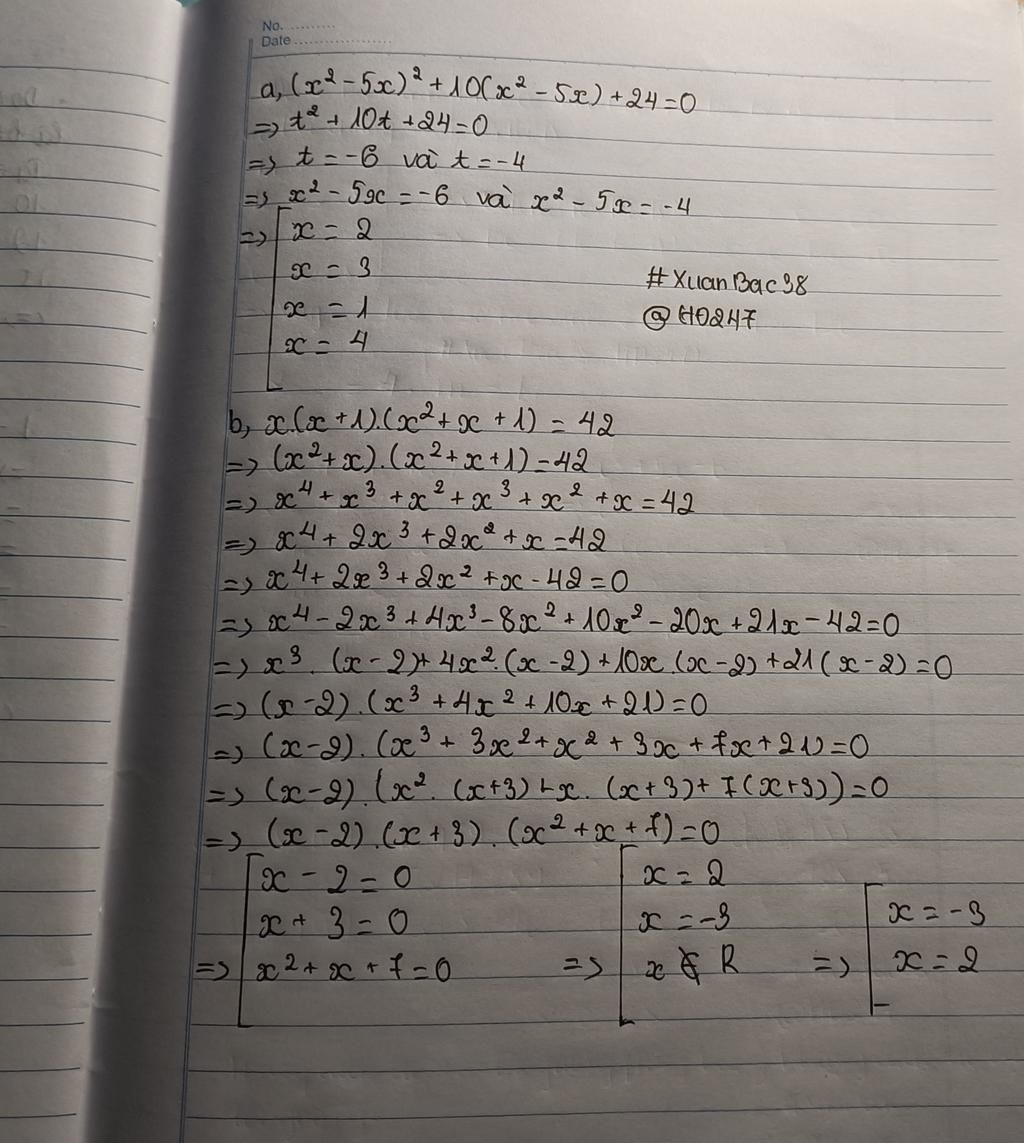 No. ..........
Date ....................
a, (x² - 5x)² + 10(x² - 5x) + 24 = 0
=> t² + 10t + 24 = 0
=> t = -6 và t = -4
=> x² - 5x = -6 và x² - 5x = -4
=> [ x = 2
x = 3
x = 1
x = 4
#XuanBac98
@H0247
b, x.(x + 1).(x² + x + 1) = 42
=> (x² + x).(x² + x + 1) = 42
=> x⁴ + x³ + x² + x³ + x² + x = 42
=> x⁴ + 2x³ + 2x² + x = 42
=> x⁴ + 2x³ + 2x² + x - 42 = 0
=> x⁴ - 2x³ + 4x³ - 8x² + 10x² - 20x + 21x - 42 = 0
=> x³. (x - 2) + 4x².(x - 2) + 10x.(x - 2) + 21(x - 2) = 0
=> (x - 2).(x³ + 4x² + 10x + 21) = 0
=> (x - 2).(x³ + 3x² + x² + 3x + 7x + 21) = 0
=> (x - 2).(x². (x + 3) + x. (x + 3) + 7(x + 3)) = 0
=> (x - 2).(x + 3).(x² + x + 7) = 0
=> [ x - 2 = 0
x + 3 = 0
x² + x + 7 = 0
=> [ x = 2
x = -3
x ∉ R
=> [ x = -3
x = 2